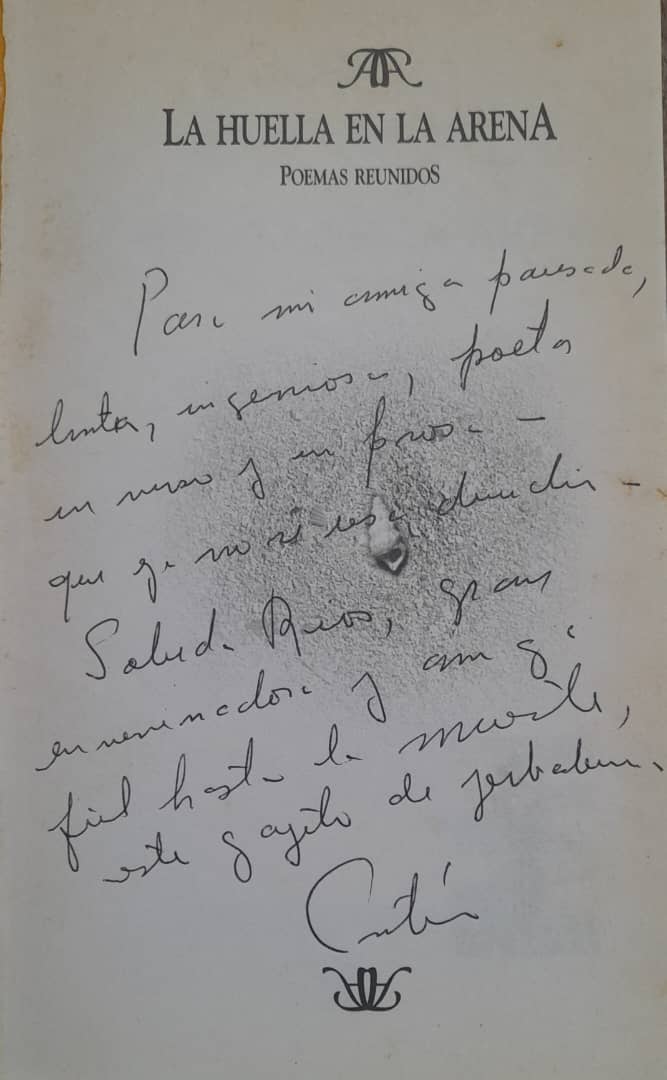 LA HUELLA EN LA ARENA
POEMAS REUNIDOS
Para mi amiga pausada,
lenta, ingeniosa, poeta
en verso y en prosa -
que ya no se usa
Salud. Ríos, gran
envenenadora y amiga
fiel hasta la muerte,
este gajito de yerbabuena.